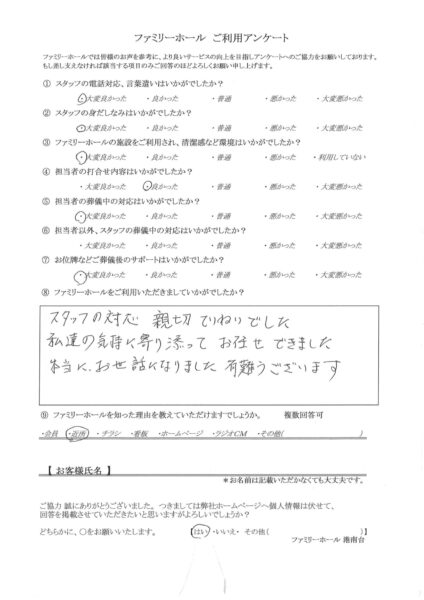 ファミリーホール ご利用アンケート
ファミリーホールでは皆様のお声を参考に、より良いサービスの向上を目指しアンケートへのご協力をお願いしております。
もし差し支えなければ該当する項目のみご回答のほどよろしくお願い申し上げます。
① スタッフの電話対応、言葉遣いはいかがでしたか?
・大変良かった ・良かった ・普通 ・悪かった ・大変悪かった
② スタッフの身だしなみはいかがでしたか?
・大変良かった ・良かった ・普通 ・悪かった ・大変悪かった
③ ファミリーホールの施設をご利用され、清潔感など環境はいかがでしたか?
・大変良かった ・良かった ・普通 ・悪かった ・利用していない
④ 担当者の打合せ内容はいかがでしたか?
・大変良かった ・良かった ・普通 ・悪かった ・大変悪かった
⑤ 担当者の葬儀中の対応はいかがでしたか?
・大変良かった ・良かった ・普通 ・悪かった ・大変悪かった
⑥ 担当者以外、スタッフの葬儀中の対応はいかがでしたか?
・大変良かった ・良かった ・普通 ・悪かった ・大変悪かった
⑦ お位牌などご葬儀後のサポートはいかがでしたか?
・大変良かった ・良かった ・普通 ・悪かった ・大変悪かった
⑧ ファミリーホールをご利用いただきましていかがでしたか?
スタッフの対応 親切 ていねいでした
私達の気持に寄り添って お任せ できました
本当に、お世話になりました 有難うございます
⑨ ファミリーホールを知った理由を教えていただけますでしょうか。 複数回答可
・会員 ・近所 ・チラシ ・看板 ・ホームページ ・ラジオCM ・その他( )
【 お客様氏名 】
*お名前は記載いただかなくても大丈夫です。
ご協力 誠にありがとうございました。つきましては弊社ホームページへ個人情報は伏せて、
回答を掲載させていただきたいと思いますがよろしいでしょうか?
どちらかに、○をお願いいたします。 【はい ・いいえ・ その他( )】
ファミリーホール 港南台